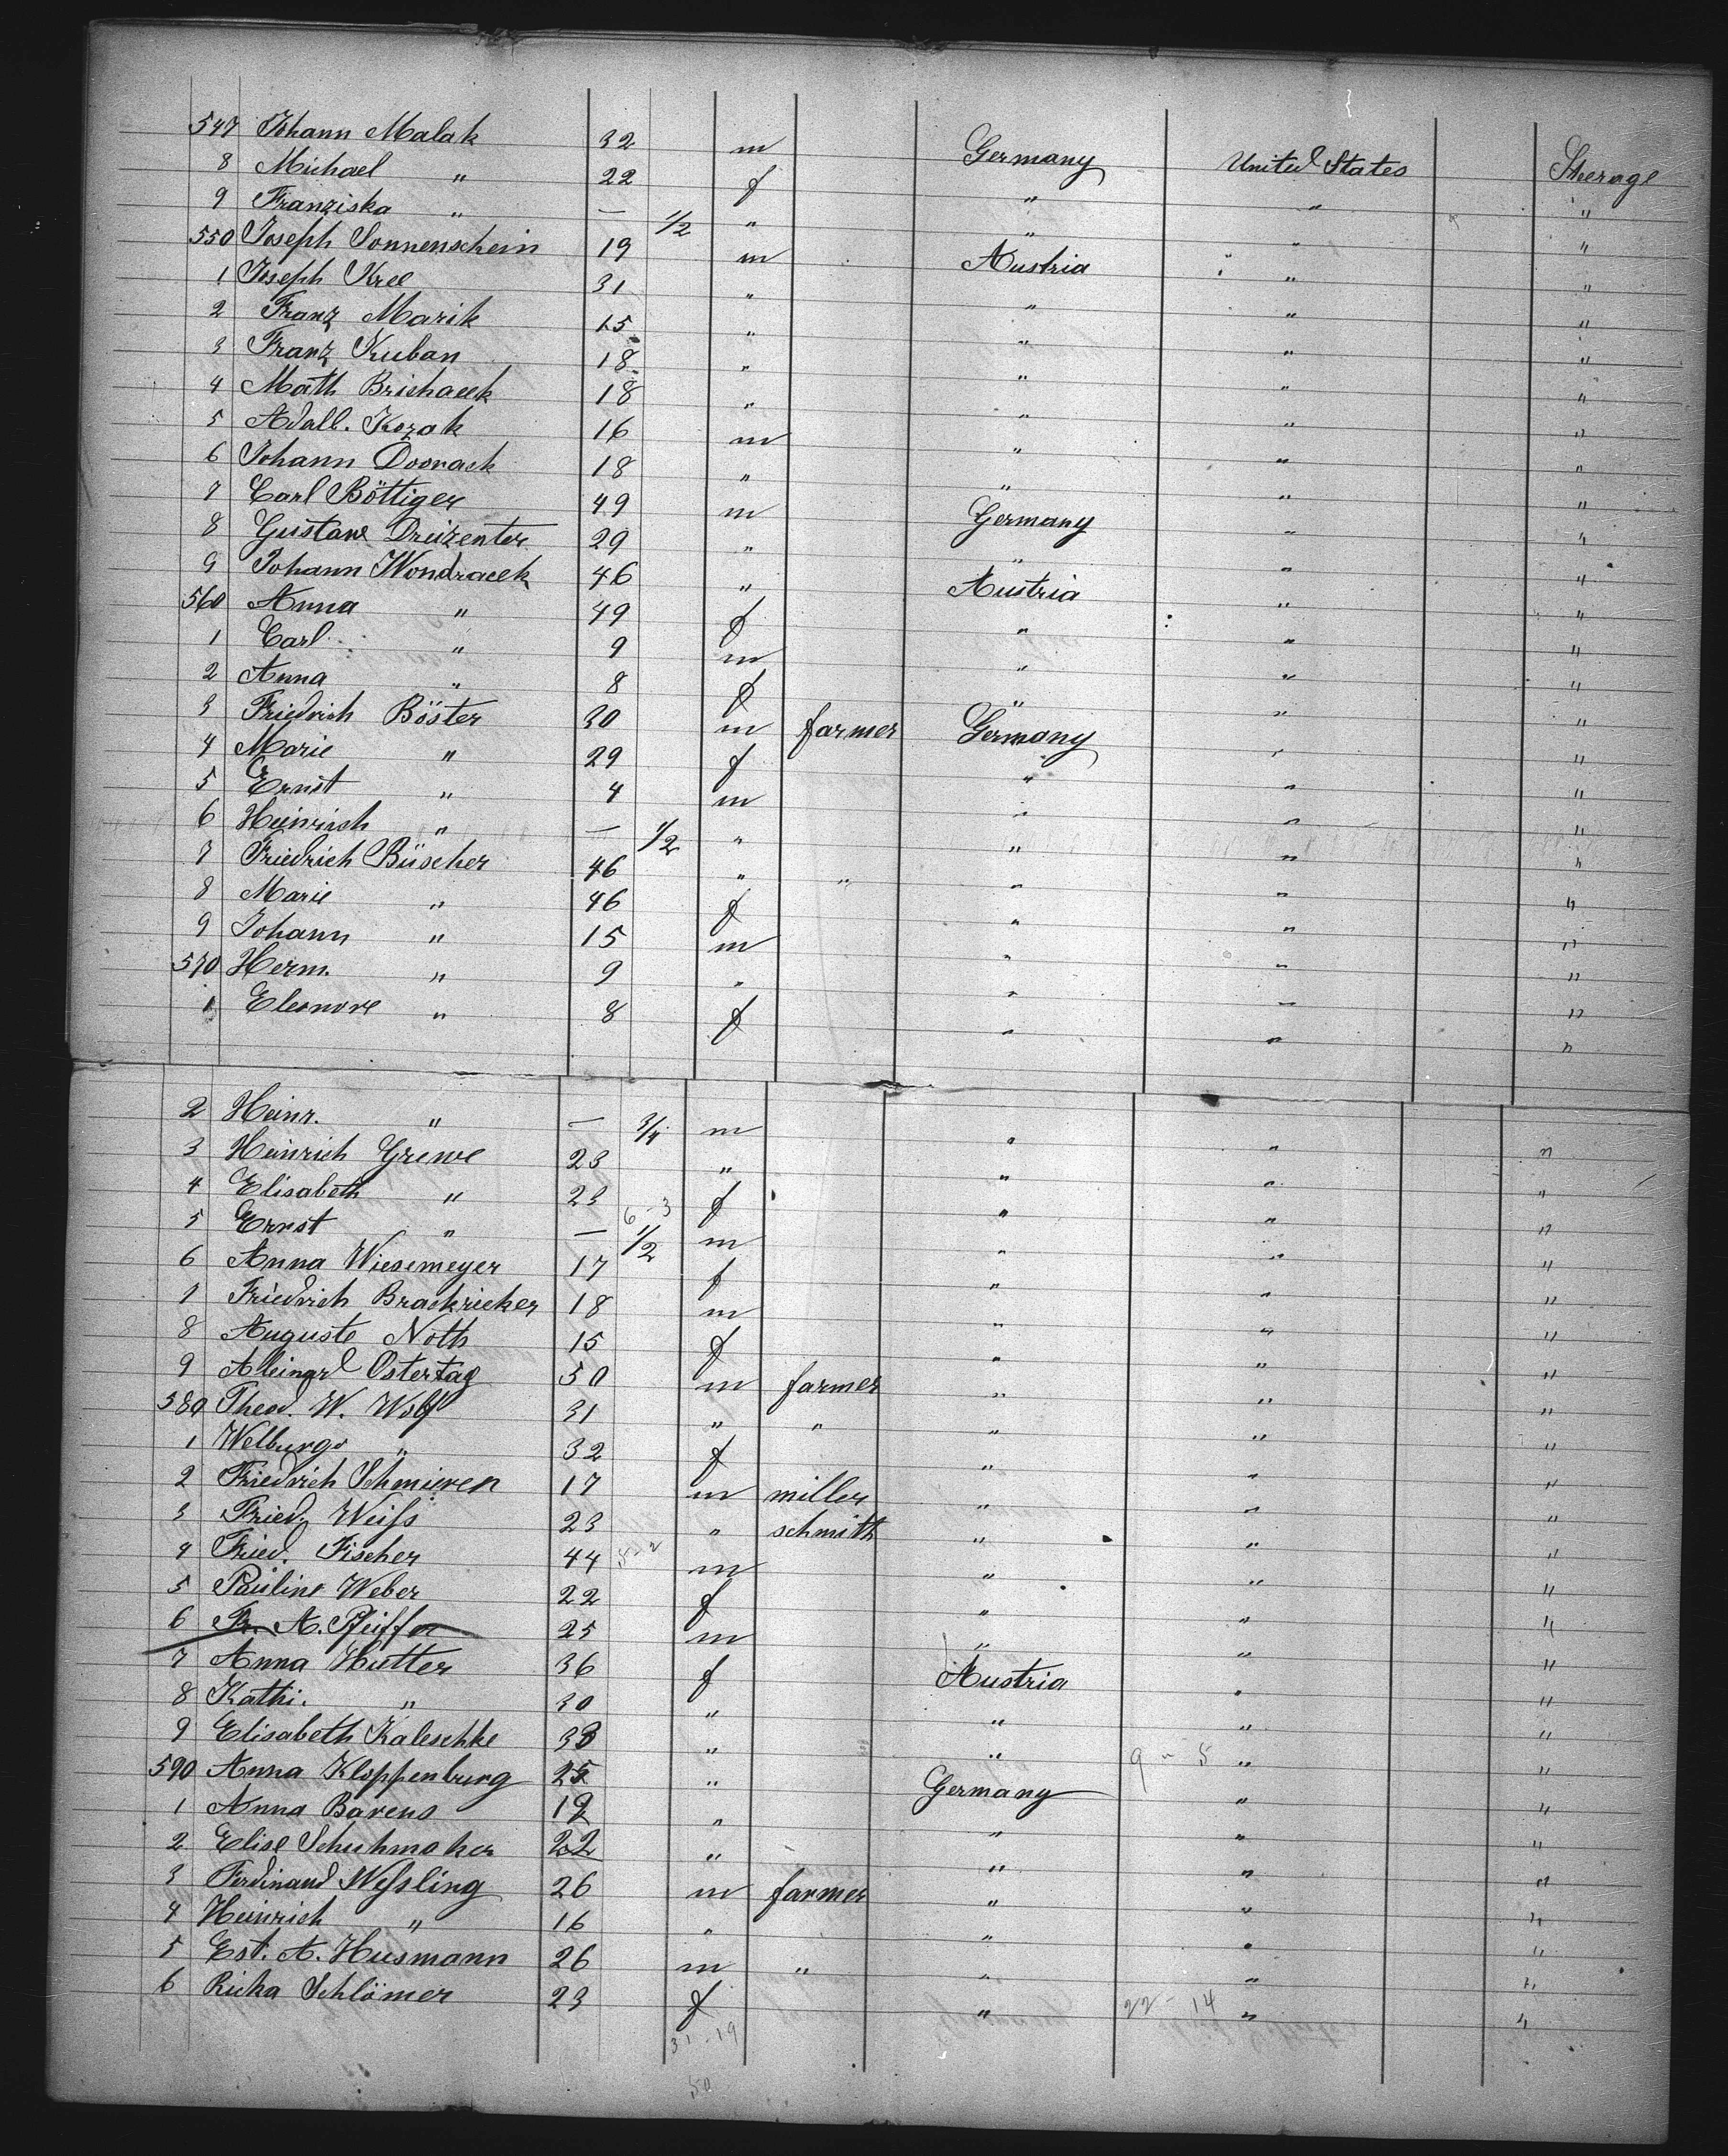 547 Johann Malak 32 m Germany United States Steerage
8 Michael " 22 f " " "
9 Franziska " — 1/2 " " " "
550 Joseph Sonnenschein 19 m Austria " "
1 Joseph Krel 31 " " " "
2 Franz Marik 15 " " " "
3 Franz Kuban 18 " " " "
4 Math Brichacek 18 " " " "
5 Adalb. Kozak 16 m " " "
6 Johann Dvorack 18 " " " "
7 Carl Böttiger 49 m Germany " "
8 Gustave Dreizenter 29 " " " "
9 Johann Wondracek 46 " Austria " "
560 Anna " 49 f " " "
1 Carl " 9 m " " "
2 Anna " 8 f " " "
3 Friedrich Böster 30 m farmer Germany " "
4 Marie " 29 f " " "
5 Ernst " 4 m " " "
6 Heinrich " — 1/2 " " " "
7 Friedrich Büscher 46 " " " " "
8 Marie " 46 f " " "
9 Johann " 15 m " " "
570 Herm. " 9 " " " "
1 Eleonore " 8 f " " "
2 Heinr. " — 3/4 m " " "
3 Heinrich Grewe 23 " " " "
4 Elisabeth " 23 f " " "
6 - 3
5 Ernst " — 1/2 m " " "
6 Anna Wiesemeyer 17 f " " "
7 Friedrich Brackricker 18 m " " "
8 Auguste Noth 15 f " " "
9 Meinard Ostertag 50 m farmer " " "
580 Theod. W. Wolf 31 " " " " "
1 Welburga " 32 f " " "
2 Friedrich Schmieren 17 m miller " " "
3 Fried. Weiss 23 " schmith " " "
4 Fried. Fischer 44 m " " "
5 Pauline Weber 22 f " " "
6 Fr. A. Pfeiffer 25 m " " "
7 Anna Hutter 36 f Austria " "
8 Kathi. " 30 " " " "
9 Elisabeth Kaleschke 33 " " 9 - 5 " "
590 Anna Kloppenburg 25 " Germany " "
1 Anna Barens 19 " " " "
2 Elise Schuhmaker 22 " " " "
3 Ferdinand Wessling 26 m farmer " " "
4 Heinrich " 16 " " " "
5 Est. A. Husmann 26 m " " " "
6 Ricka Schlömer 23 f " 22 - 14 " "
31 - 19
50